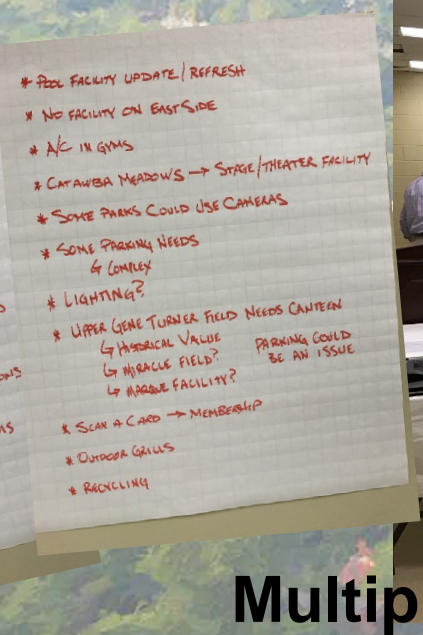 * POOL FACILITY UPDATE/REFRESH
* NO FACILITY ON EAST SIDE
* A/C IN GYMS
* CATAWBA MEADOWS → STAGE/THEATER FACILITY
* SOME PARKS COULD USE CAMERAS
* SOME PARKING NEEDS
↳ COMPLEX
* LIGHTING?
* UPPER GENE TURNER FIELD NEEDS CANTEEN
↳ HISTORICAL VALUE
↳ MIRACLE FIELD?
↳ MARQUE FACILITY?
PARKING COULD
BE AN ISSUE
* SCAN A CARD → MEMBERSHIP
* OUTDOOR GRILLS
* RECYCLING
ONS
Multip